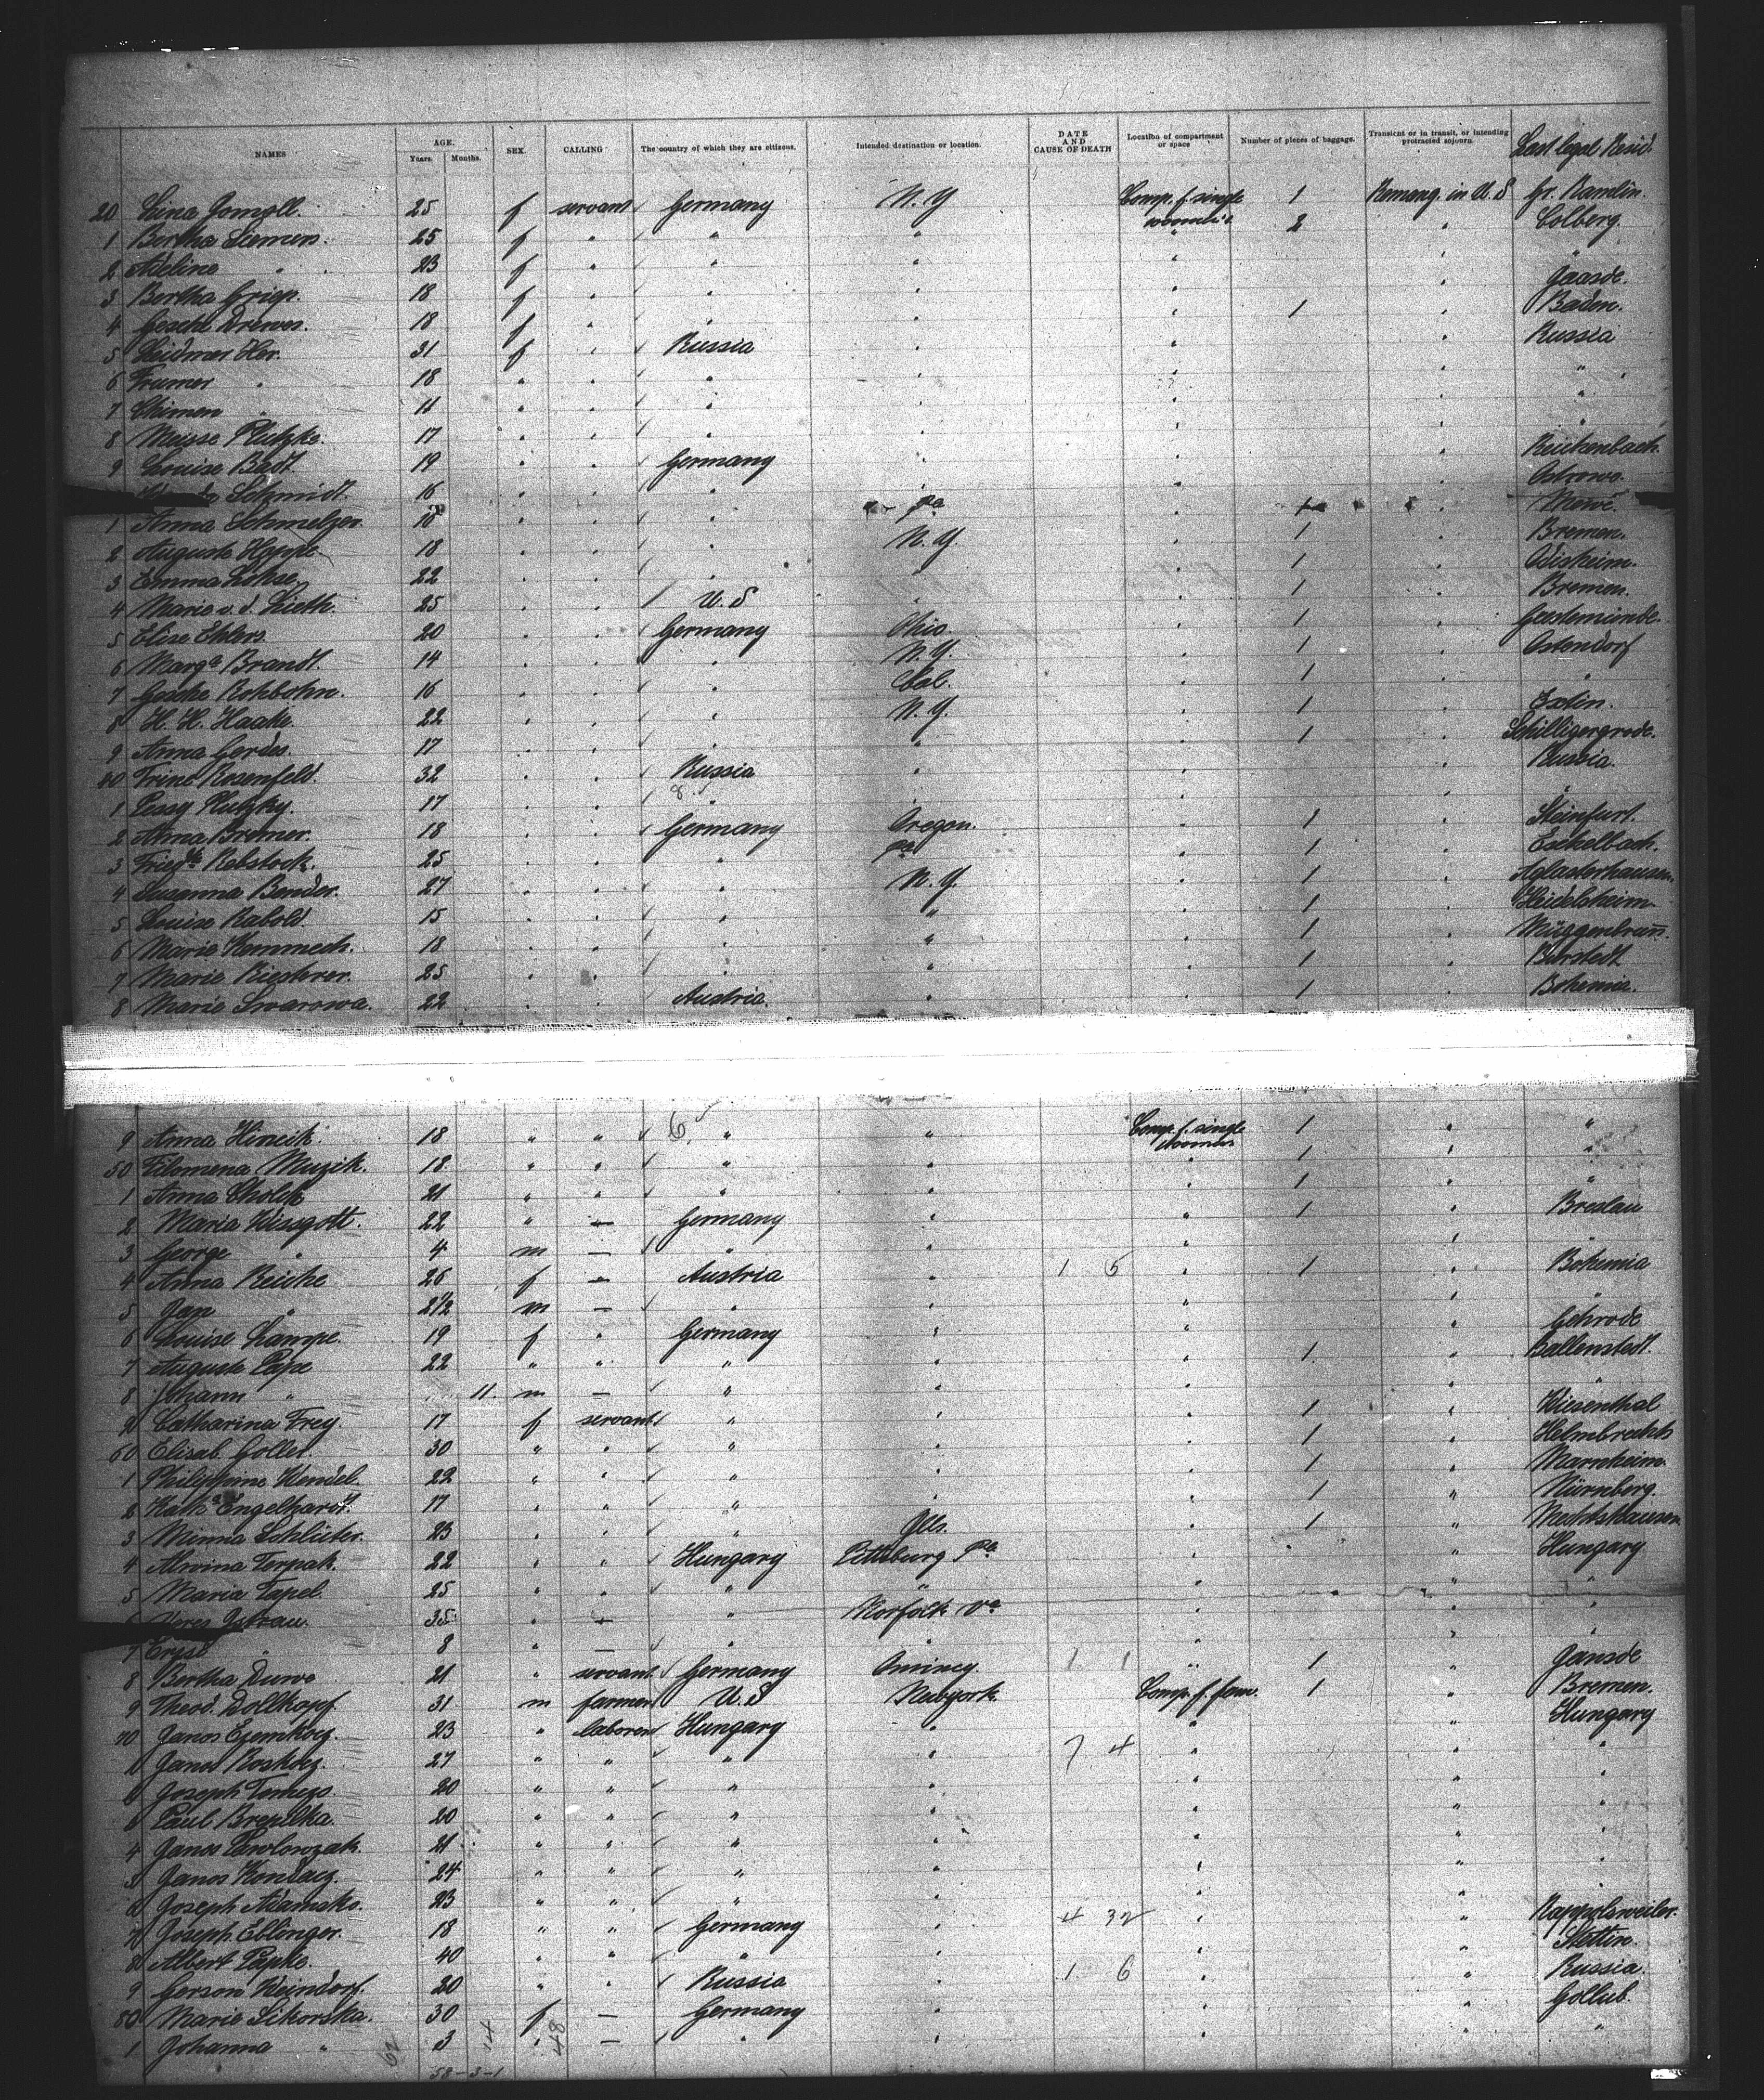 NAMES AGE. Years. Months. SEX. CALLING The country of which they are citizens. Intended destination or location. DATE AND CAUSE OF DEATH Location of compartment or space Number of pieces of baggage. Transient or in transit, or intending protracted sojourn. Last legal Resid.
20 Lina Gomoll. 25 f servant Germany N. Y Comp. f. single women 1 Remang. in U. S Gr. Ramlin.
1 Bertha Siemers. 25 f " " " " 2 " Colberg.
2 Adeline " 23 f " " " " " "
3 Bertha Griep. 18 f " " " " " Jaasde.
4 Gesche Drewes. 18 f " " " " 1 " Baden.
5 31 f " Russia " " " Russia
6 Frumer " 18 " " " " " " "
7 Chimen " 11 " " " " " " "
8 Meisse Plutzke. 17 " " " " " " "
9 Louise Badt 19 " " Germany " " " Reichenbach.
Schmidt. 16 " " " " " " Ostrowo.
1 Anna Schmelzer. 18 " " " Pa " 1 " Mewe.
2 Auguste Hoppe. 18 " " " N. Y. " 1 " Bremen.
3 Emma Lohse. 22 " " " " " 1 "
4 Marie v. d. Lieth. 25 " " U. S " " 1 " Bremen.
5 Elise Ehlers. 20 " " Germany Ohio. " 1 " Geestemünde.
6 Marg. Brandt. 14 " " " N. Y. " 1 " Ostendorf
7 Gesche Rohbohn. 16 " " " Cal. " 1 " "
8 H. H. Haake. 22 " " " N. Y. " 1 "
9 Anna Gerdes. 17 " " " " " 1 " Schilligergrode.
40 Trine Rosenfeld. 32 " " Russia " " " Russia.
1 Pessy Plutzky. 17 " " 8 " " " " "
2 Anna Bremer. 18 " " Germany Oregon. " 1 " Steinfurt.
3 Fried. Rebstock. 25 " " " Pa " 1 " Eschelbach.
4 Susanna Bender. 27 " " " N. Y. " 1 " Aglasterhausen.
5 Louise Rabold. 15 " " " " " 1 " Heidelsheim.
6 Marie Kemmech. 18 " " " " " 1 " Müggenbrunn.
7 Marie Riesterer. 25 " " " " " 1 " Bürstedt
8 Marie Swarowa. 22 " " Austria. " " 1 " Bohemia.
9 Anna Hincik. 18 " " 6 " " Comp. f. single women 1 " "
50 Filomena Muzik. 18 " " " " " 1 " "
1 Anna Cholek 21 " " " " " 1 " "
2 Maria Wissgott. 22 " — Germany " " 1 " Breslau
3 George " 4 m — " " " " "
4 Anna Reiche 26 f — Austria " 1 6 " 1 " Bohemia
5 Jan " 2 1/2 m — " " " " "
6 Louise Lampe. 19 f " Germany " " " Gehrode
7 Auguste Pape 22 " " " " " 1 " Ballenstedt.
8 Johann " 11. m — " " " " "
9 Catharina Frey. 17 f servant " " " 1 " Wiesenthal
60 Elisab. Goller. 30 " " " " " 1 " Helmbrechts
1 Philippine Wendel 22 " " " " " 1 " Marnheim.
2 Kath. Engelhardt. 17 " " " " " 1 " Nürnberg.
3 Minna Schlüter. 23 " " " Ills. " 1 "
4 Alwina Torpak. 22 " " Hungary Pittsburg Pa " " Hungary
5 Maria Tapel. 25 " " " " " " "
35 " — " Norfolk Va " " "
7 " 8 " — " " " " "
8 Bertha Durwe 21 " servant Germany Quincy. 1 1 " 1 " Jansde
9 Theod. Dollkopf. 31 m farmer U. S Newyork. Comp. f. fam. 1 " Bremen.
70 Janos 23 " laborer Hungary " " " Hungary
1 Janos 27 " " " " 7 4 " " "
Joseph 20 " " " " " " "
Paul 20 " " " " " " "
4 Janos Pawlowzak. 21 " " " " " " "
Janos Kondacz. 24 " " " " " " "
Joseph Adamsko. 23 " " " " " " "
Joseph Eblinger. 18 " " Germany " 4 32 " " Rappolsweiler.
8 Albert Papke. 40 " " " " " " Stettin.
9 Gerson Weindorf. 20 " " Russia " 1 6 " " Russia.
80 Marie Sikorska. 30 f — Germany " " " Gollub.
1 Johanna " 3 " — " " " " "
62 14 48
58-3-1